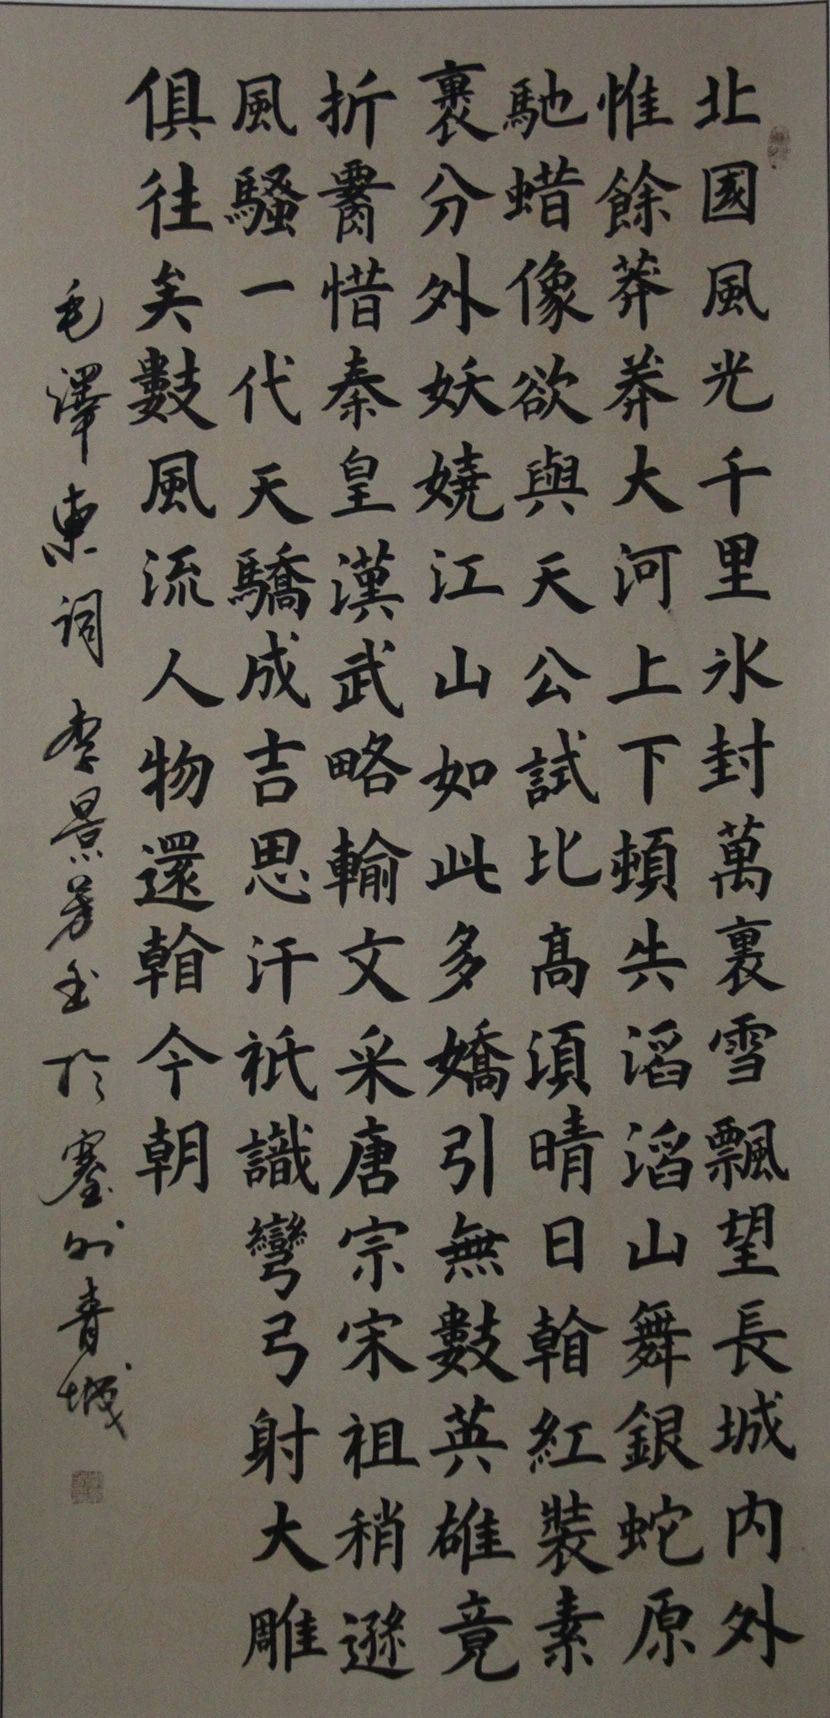 北國風光千里氷封萬裏雪飄望長城内外
惟餘莽莽大河上下頓失滔滔山舞銀蛇原
馳蜡像欲與天公試比高須晴日翰紅裝素
裹分外妖嬈江山如此多嬌引無數英雄竟
折霄惜秦皇漢武略輸文采唐宗宋祖稍遜
風騷一代天驕成吉思汗祇識彎弓射大雕
俱往矣數風流人物還翰今朝
毛澤東詞 李景芳書於塞外青城